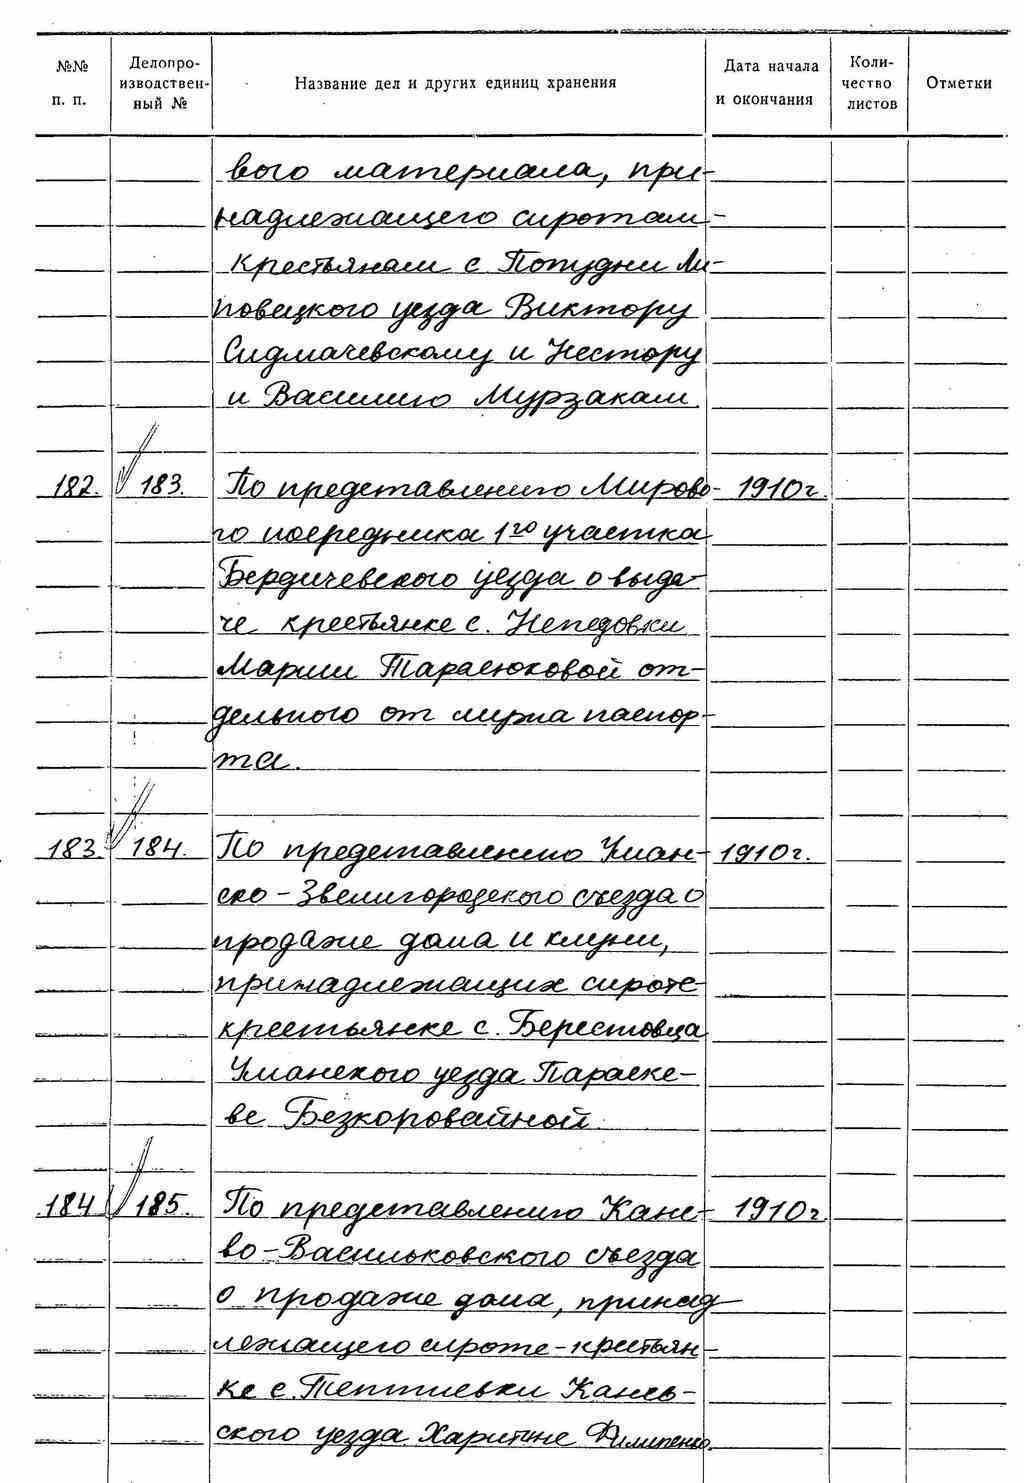 №№ п. п. Делопроизводствен-ный № Название дел и других единиц хранения Дата начала и окончания Коли-чество листов Отметки
вого материала, при-
надлежащего сиротам-
крестьянам с. Попудни Ли-
повецкого уезда Виктору
Сидмачевскому и Нестору
и Василию Мурзакам.
182. 183. По представлению Мирово- 1910 г.
го посредника 1го участка
Бердичевского уезда о выда-
че крестьянке с. Непедовки
Марии Тарасюковой от-
дельного от мужа паспор-
та.
183. 184. По представлению Уман- 1910 г.
ско-Звенигородского съезда о
продаже дома и клуни,
принадлежащих сироте-
крестьянке с. Берестовца
Уманского уезда Параске-
ве Безкоровайной.
184 185. По представлению Кане- 1910 г.
во-Васильковского съезда
о продаже дома, принад
лежащего сироте-крестьян-
ке с. Тептиевки Канев-
ского уезда Харитине Филипенко.